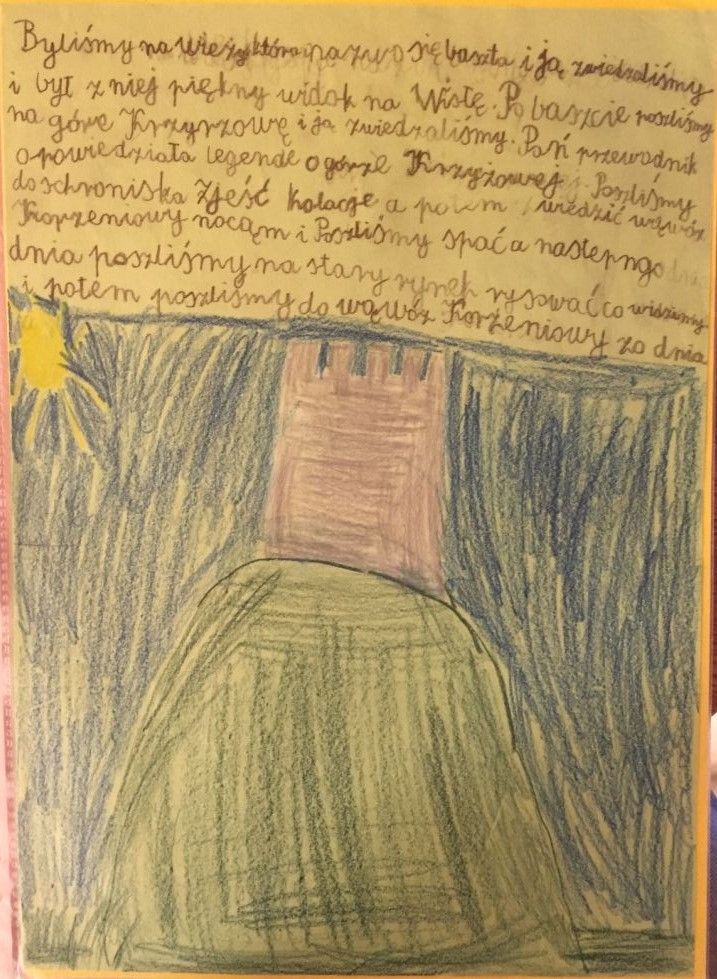 Byliśmy na wieży która nazywo się baszta i ją zwiedzaliśmy
i był z niej piękny widok na Wisłę. Po baszcie poszliśmy
na górę Krzyrzowę i ją zwiedzaliśmy. Pań przewodnik
opowiedziała legende o górze Krzyżowej. Poszliśmy
do schroniska zjeść kolacje a potem wąwóz
Korzeniowy nocąm i Poszliśmy spać a nastepngo
dnia poszliśmy na stary rynek rysować co widzimy
i potem poszliśmy do wąwóz Korzeniowy za dnia